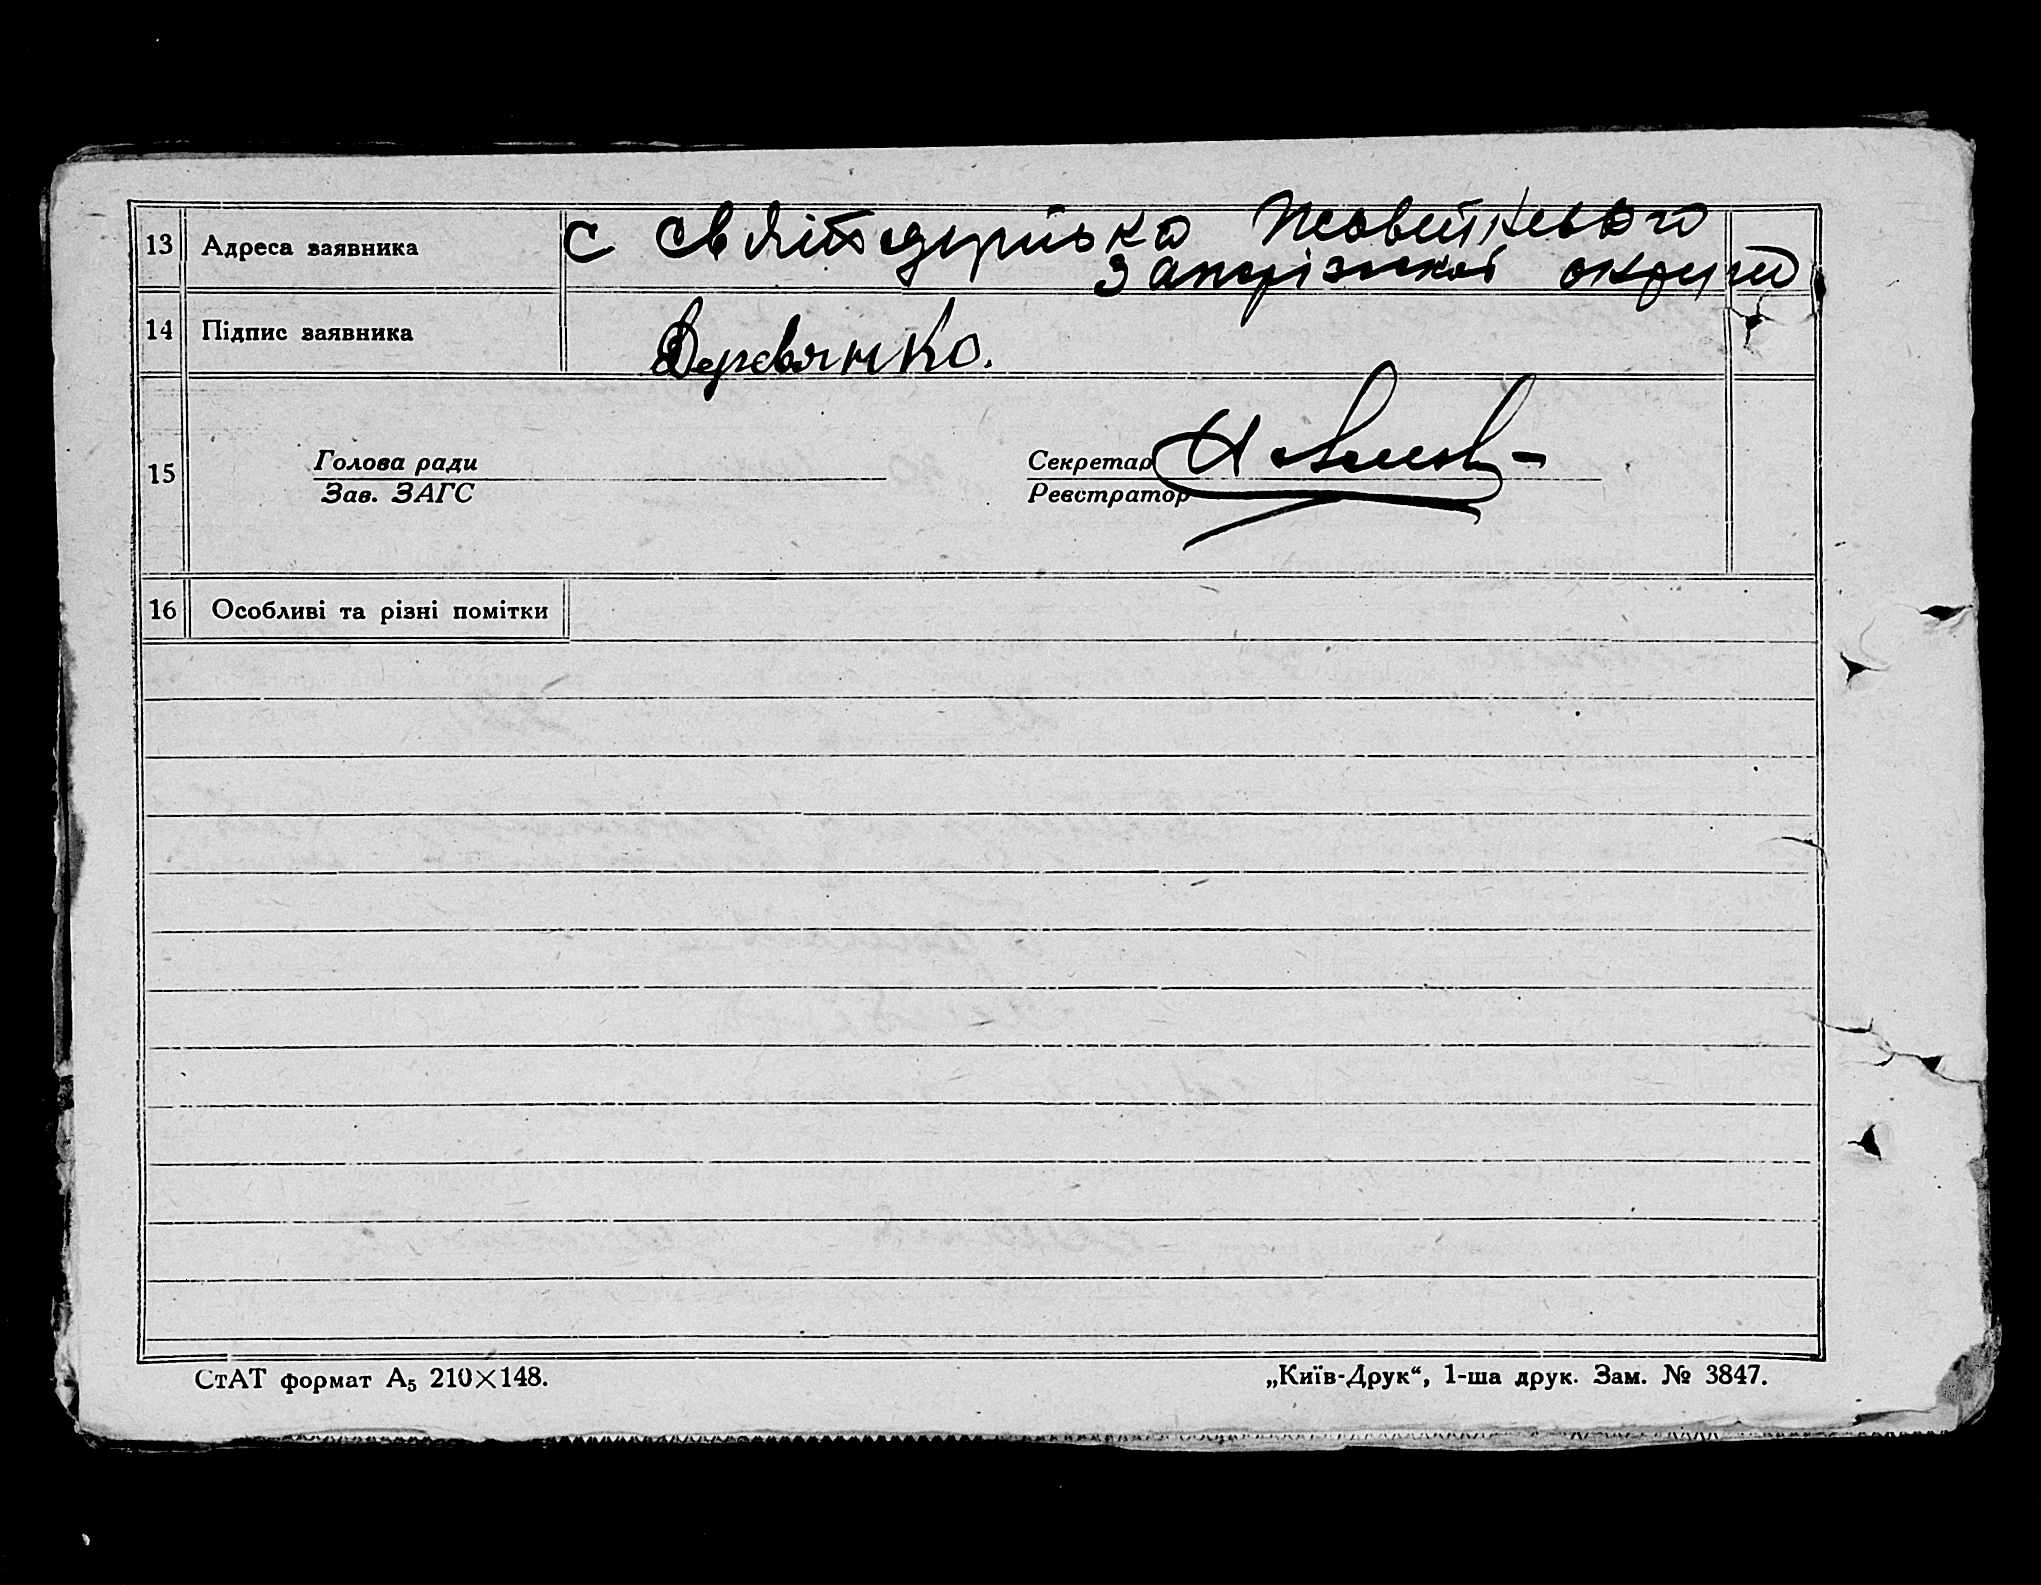 13 Адреса заявника с
Запорізької округи
14 Підпис заявника Деревянко.
15 Голова ради Секретар
Зав. ЗАГС Реєстратор
16 Особливі та різні помітки
СтАТ формат А5 210×148. „Київ-Друк“, 1-ша друк. Зам. № 3847.